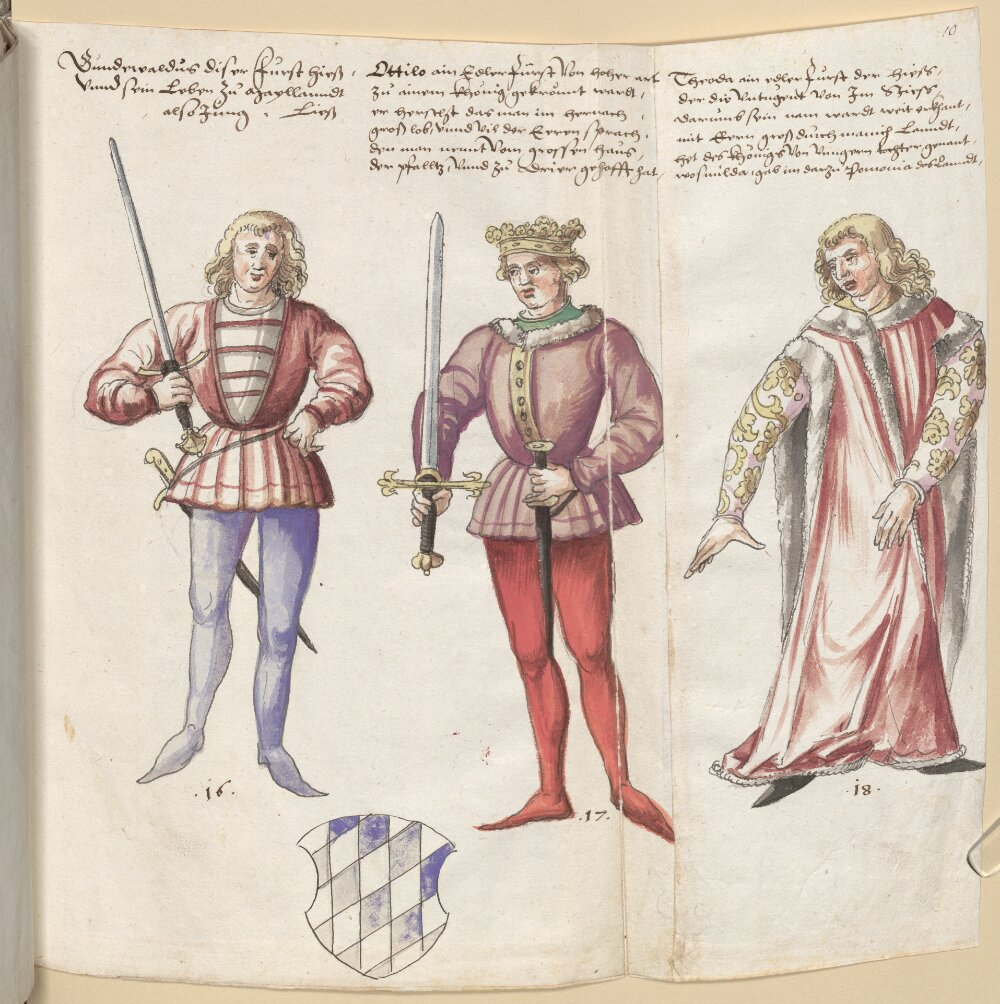 10
Gundewaldus diser Fürst hieß,
Vnnd sein Leben zu Mayllanndt
also Jung. Ließ
Ottilo ain Edler Fürst Von hoher art
zu ainem Khönig gekrönnt wardt,
er herschet das man im hernach,
groß lob, vnnd vil der Eeren sprach,
den man nennt Vom grossen hauß,
der pfalltz, Vnnd zu Trier gehofft hat,
Theoda ain edler Fürst der hiess,
der die Vntugent Von Im Stiess,
darumb sein nam wardt weit erkhant,
mit Eern groß durch manich Lanndt,
het des Khönigs Von Vnngern tochter genant,
gab im darzu Pomonia des Lanndt,
.16.
.17.
.18.